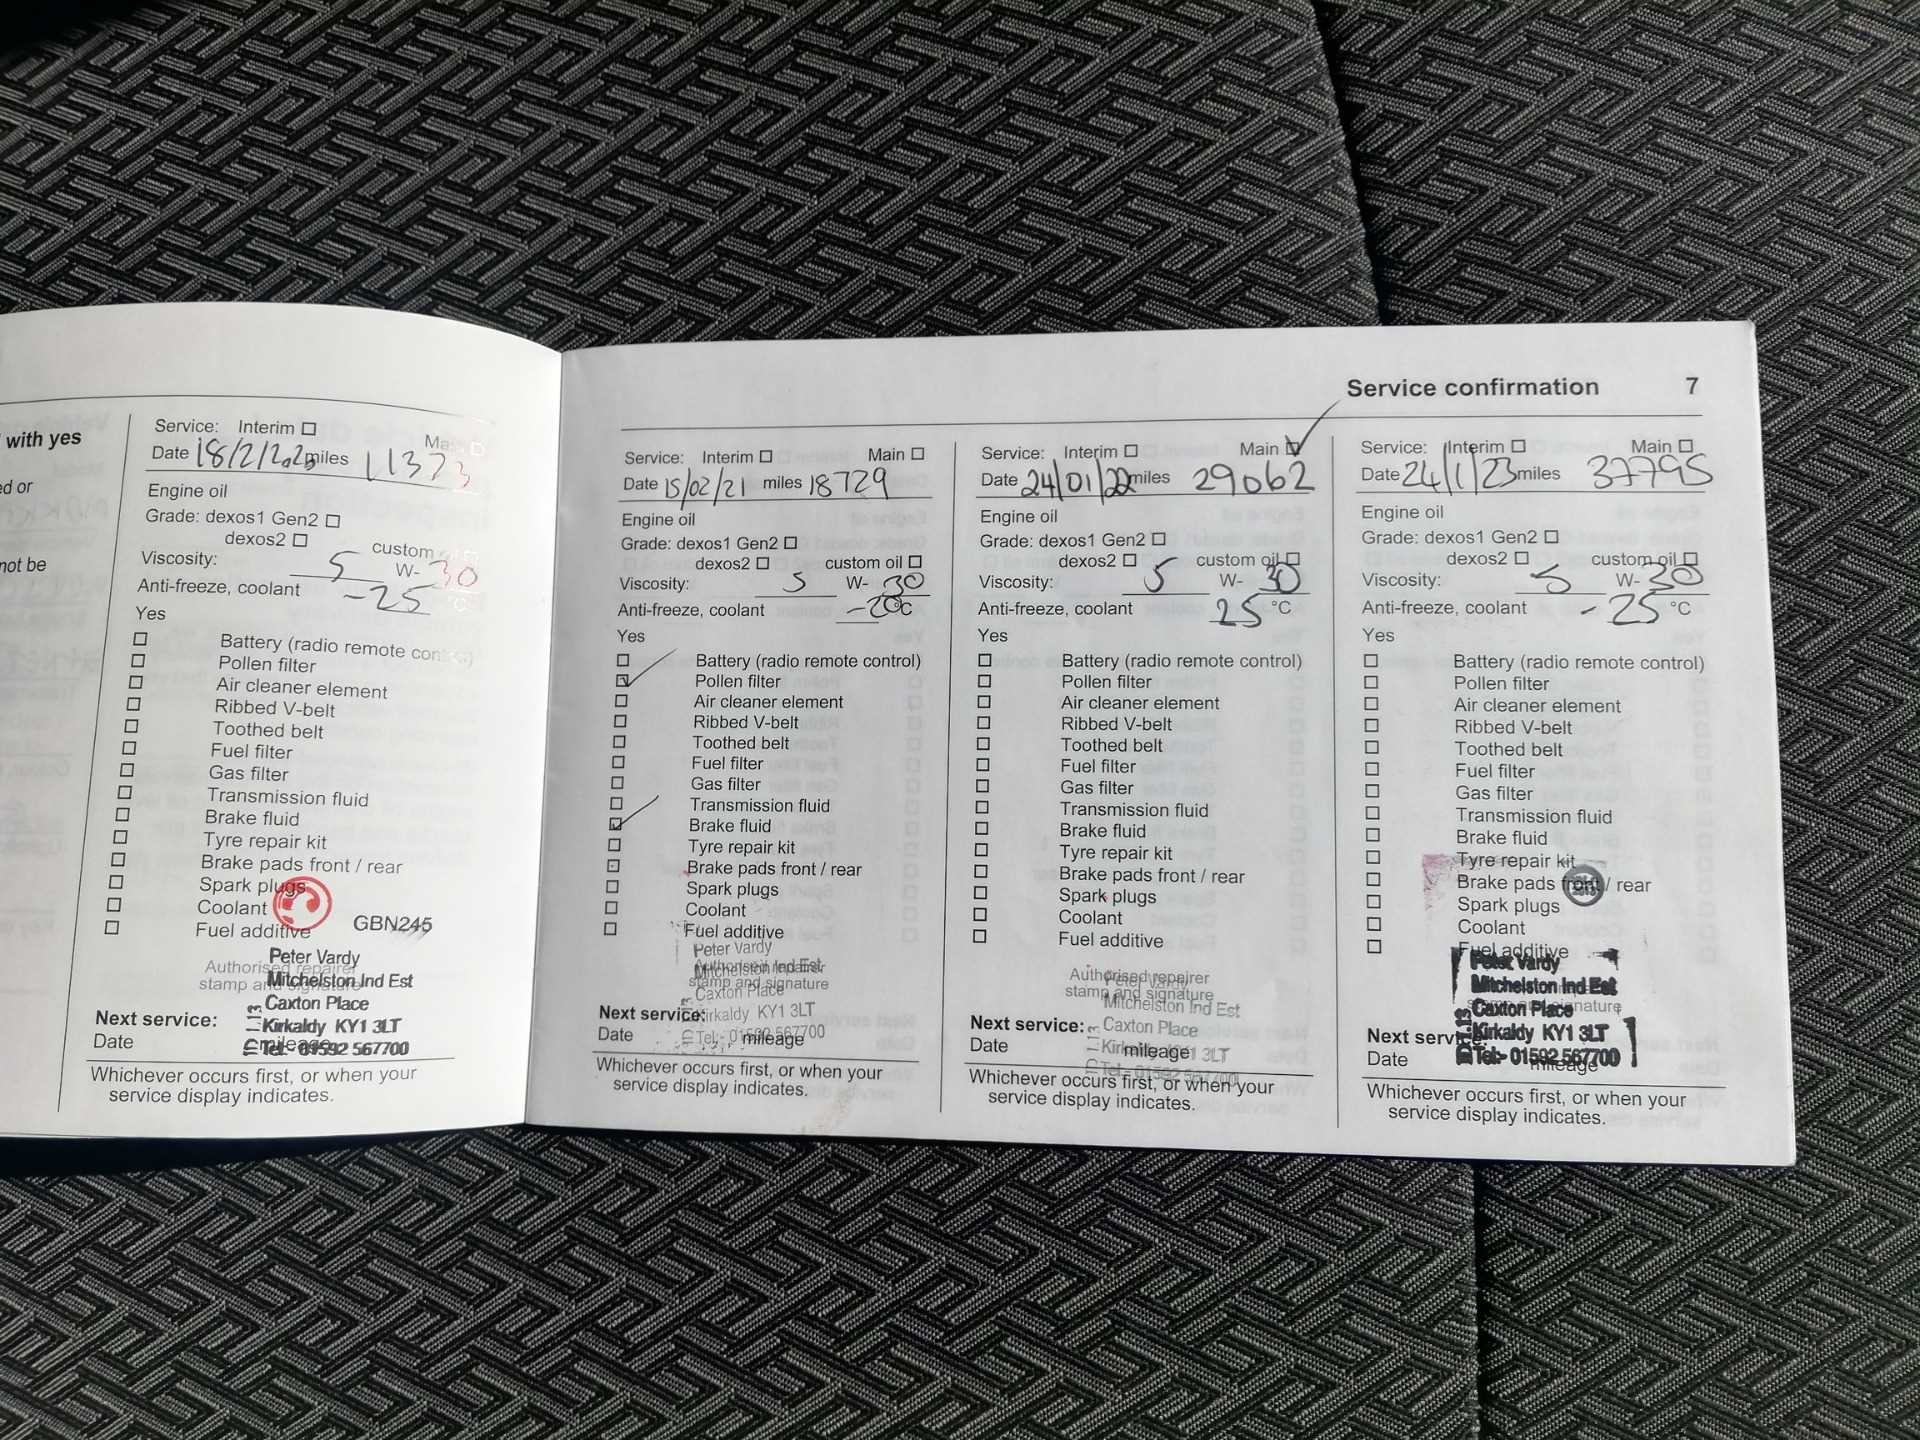 with yes
ed or
not be
Service: Interim
Date 18/2/2020 miles 11373
Engine oil
Grade: dexos1 Gen2
dexos2 custom
Viscosity: 5 W-30
Anti-freeze, coolant -25 °C
Yes
Battery (radio remote control)
Pollen filter
Air cleaner element
Ribbed V-belt
Toothed belt
Fuel filter
Gas filter
Transmission fluid
Brake fluid
Tyre repair kit
Brake pads front / rear
Spark plugs
Coolant
Fuel additive
GBN245
Authorised repairer
stamp and signature
Peter Vardy
Mitchelston Ind Est
Caxton Place
Kirkaldy KY1 3LT
Tel:- 01592 567700
Next service:
Date mileage
Whichever occurs first, or when your
service display indicates.
Service confirmation 7
Service: Interim Main
Date 15/02/21 miles 18729
Engine oil
Grade: dexos1 Gen2
dexos2 custom oil
Viscosity: 5 W-30
Anti-freeze, coolant -20°C
Yes
Battery (radio remote control)
Pollen filter
Air cleaner element
Ribbed V-belt
Toothed belt
Fuel filter
Gas filter
Transmission fluid
Brake fluid
Tyre repair kit
Brake pads front / rear
Spark plugs
Coolant
Fuel additive
Authorised repairer
stamp and signature
Peter Vardy
Mitchelston Ind Est
Caxton Place
Kirkaldy KY1 3LT
Tel:- 01592 567700
Next service:
Date mileage
Whichever occurs first, or when your
service display indicates.
Service: Interim Main
Date 24/01/22 miles 29062
Engine oil
Grade: dexos1 Gen2
dexos2 custom oil
Viscosity: 5 W-30
Anti-freeze, coolant 25 °C
Yes
Battery (radio remote control)
Pollen filter
Air cleaner element
Ribbed V-belt
Toothed belt
Fuel filter
Gas filter
Transmission fluid
Brake fluid
Tyre repair kit
Brake pads front / rear
Spark plugs
Coolant
Fuel additive
Authorised repairer
stamp and signature
Peter Vardy
Mitchelston Ind Est
Caxton Place
Kirkaldy KY1 3LT
Tel:- 01592 567700
Next service:
Date mileage
Whichever occurs first, or when your
service display indicates.
Service: Interim Main
Date 24/1/23 miles 37795
Engine oil
Grade: dexos1 Gen2
dexos2 custom oil
Viscosity: 5 W-30
Anti-freeze, coolant -25 °C
Yes
Battery (radio remote control)
Pollen filter
Air cleaner element
Ribbed V-belt
Toothed belt
Fuel filter
Gas filter
Transmission fluid
Brake fluid
Tyre repair kit
Brake pads front / rear
Spark plugs
Coolant
Fuel additive
stamp and signature
Peter Vardy
Mitchelston Ind Est
Caxton Place
Kirkaldy KY1 3LT
Tel:- 01592 567700
Next service:
Date mileage
Whichever occurs first, or when your
service display indicates.